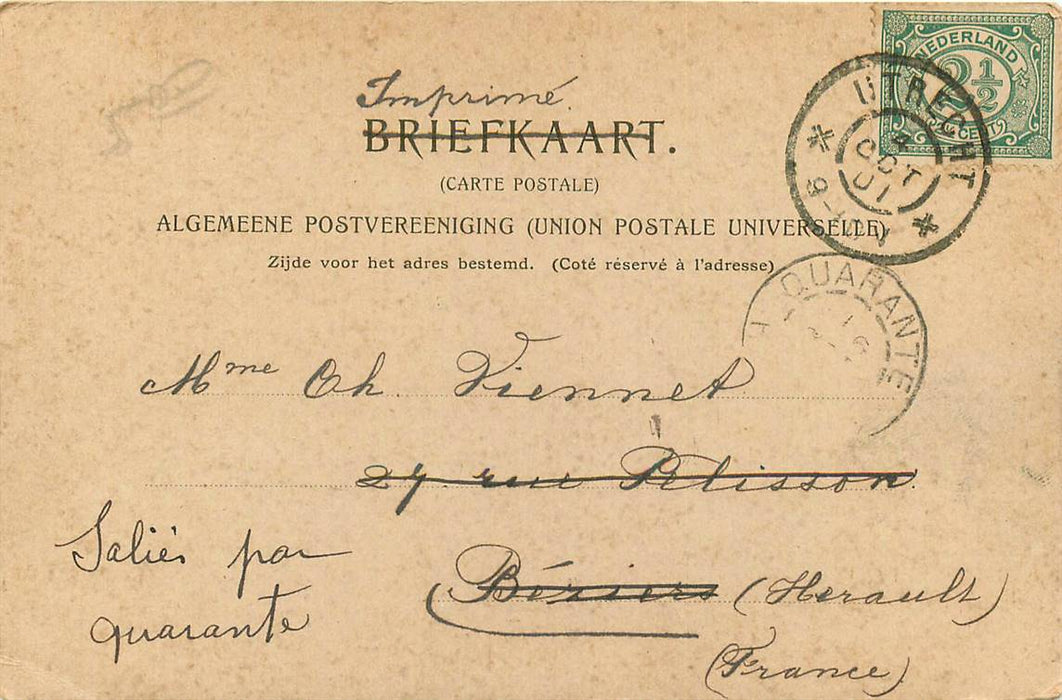 NEDERLAND
2½
CENT
UTRECHT
4
OCT
01
Imprimé.
BRIEFKAART.
(CARTE POSTALE)
ALGEMEENE POSTVEREENIGING (UNION POSTALE UNIVERSELLE)
Zijde voor het adres bestemd. (Coté réservé à l'adresse)
QUARANTE
Mme Ch. Viennet
27 rue Pelisson
Saliès par
quarante
Béziers (Herault)
(France)